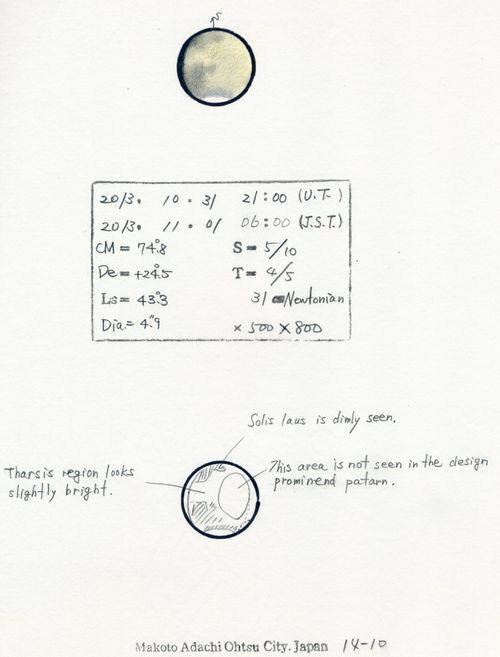 S
2013. 10. 31 21:00 (U.T.)
2013. 11. 01 06:00 (J.S.T.)
CM = 74.°8 S = 5/10
De = +24.°5 T = 4/5
Ls = 43.°3 31 cm Newtonian
Dia. = 4."9 × 500 × 800
Solis laus is dimly seen.
Tharsis region looks
slightly bright.
This area is not seen in the design
prominend patarn.
Makoto Adachi Ohtsu City. Japan 14-10